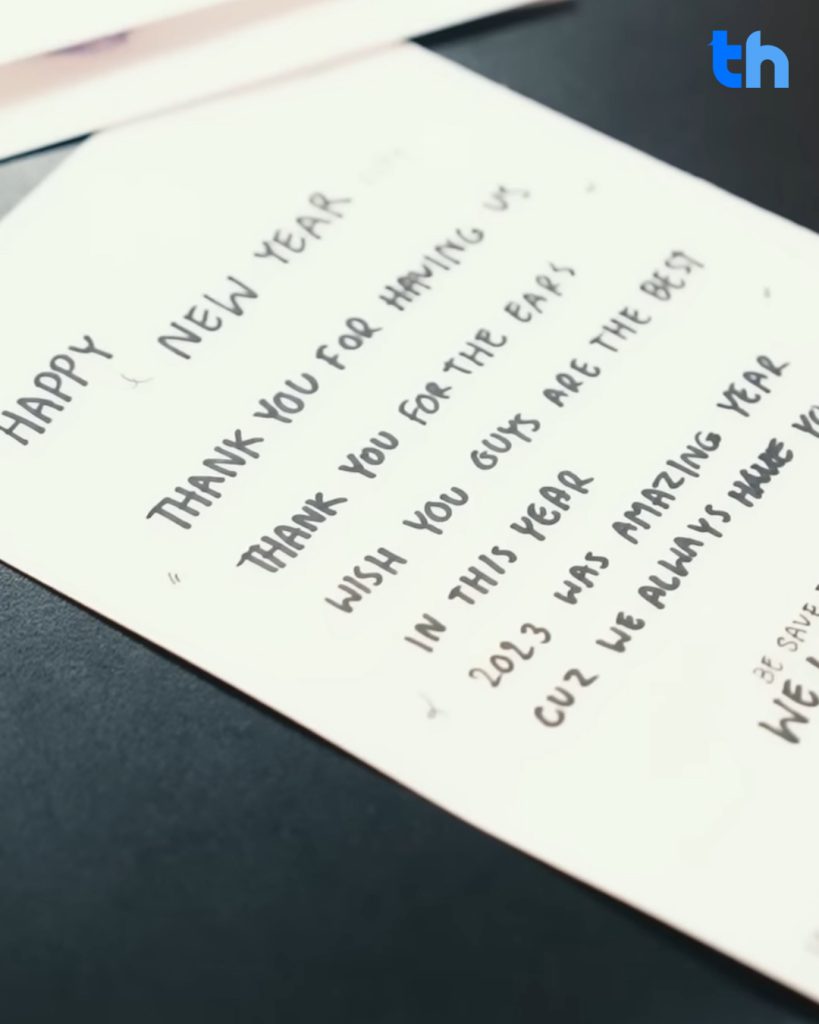 th
HAPPY NEW YEAR
THANK YOU FOR HAVING US
THANK YOU FOR THE EARS
WISH YOU GUYS ARE THE BEST
IN THIS YEAR
2023 WAS AMAZING YEAR
CUZ WE ALWAYS HAVE
BE SAVE
WE